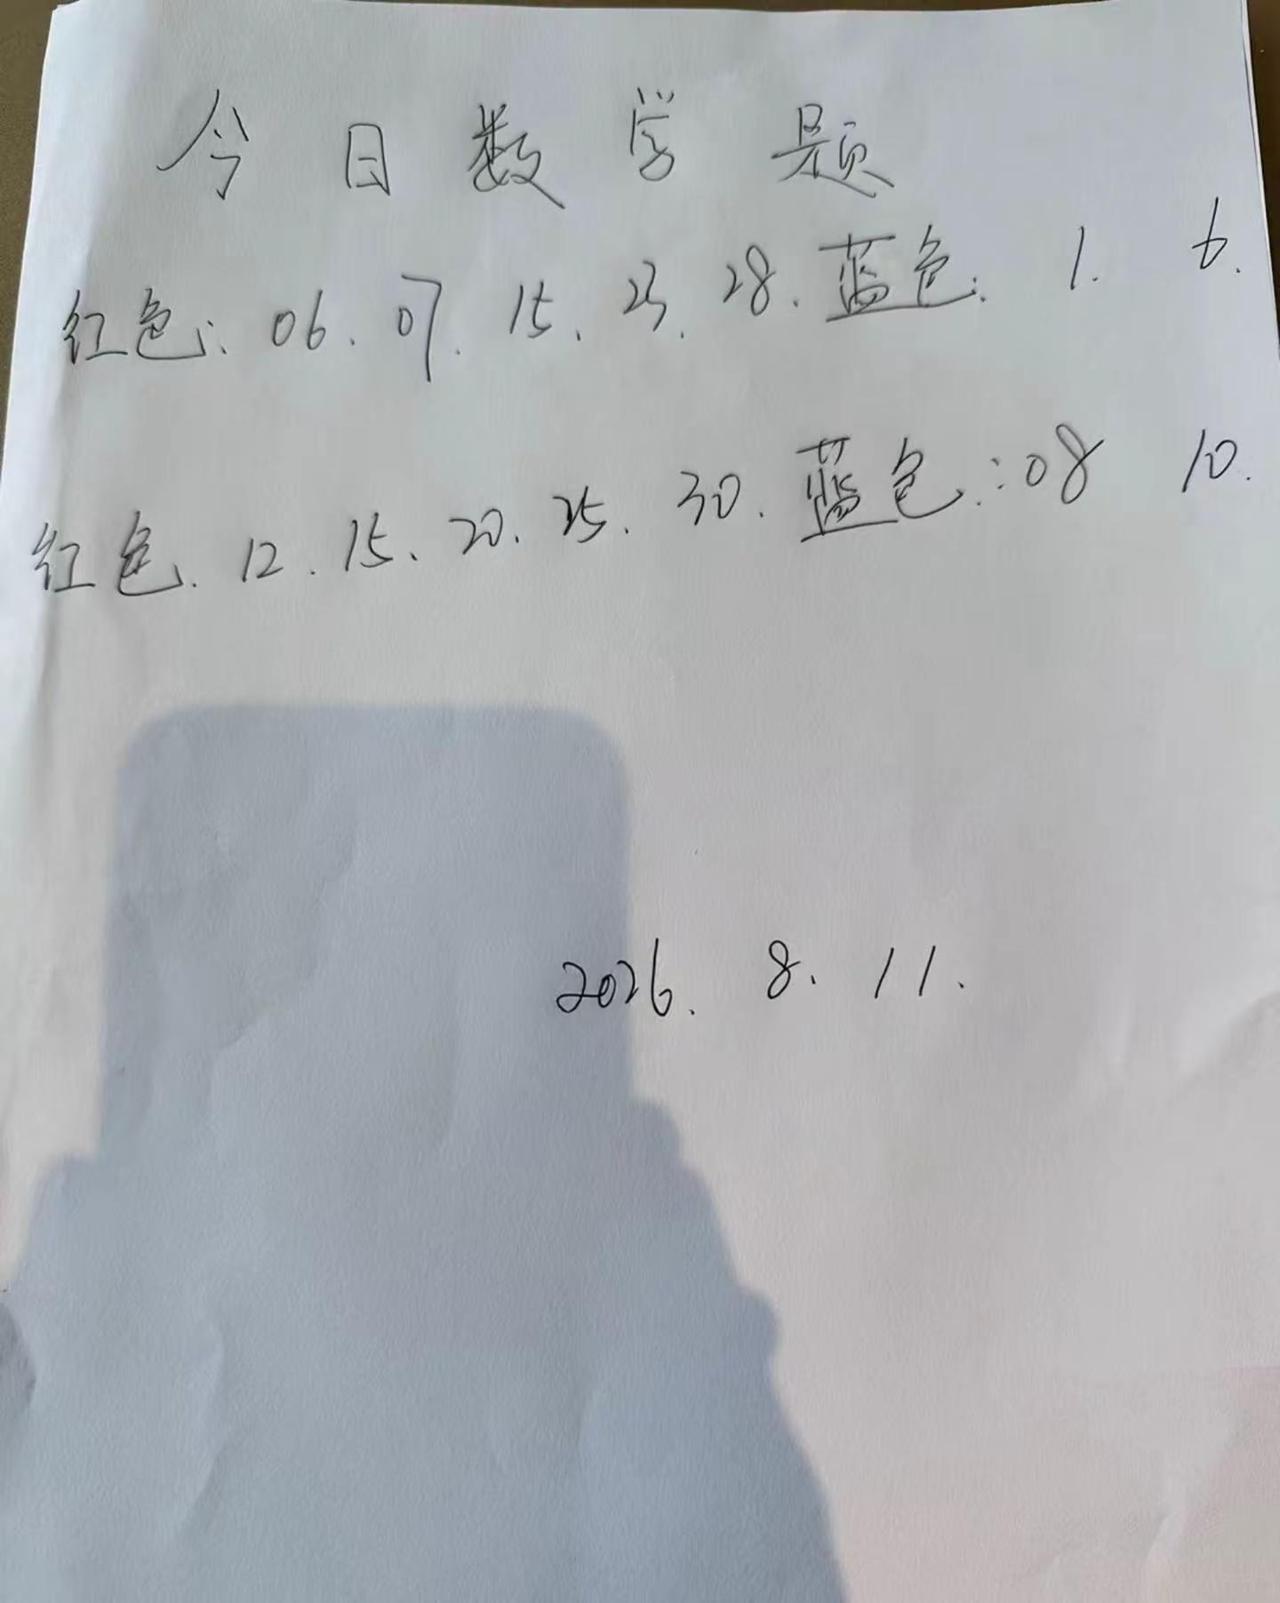 今日数学题
红色: 06. 07. 15. 23. 28. 蓝色: 1. 6.
红色. 12. 15. 20. 25. 30. 蓝色: 08 10.
2026. 8. 11.